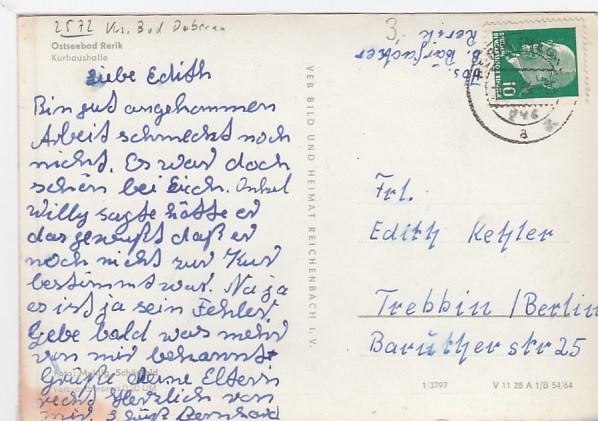 2572 Krs. Bad Doberan
Ostseebad Rerik
Kurhaushalle
Liebe Edith
Bin gut angekommen
Arbeit schmeckt noch
nicht. Es war doch
schön bei Eich. Onkel
Willy sagte hätte er
das gewußt daß er
noch nicht zur Kur
bestimmt war. Na ja
es ist ja sein Fehler.
Gebe bald was mehr
von mir bekannt
Grüße deine Eltern
recht herzlich von
mir Bernhard
Foto:
VEB BILD UND HEIMAT REICHENBACH I. V.
3.
Abs.
Rerik
10
a
Frl.
Edith Kehler
Trebbin /Berlin
Barutherstr 25
1/3797 V 11 28 A 1/B 54/64